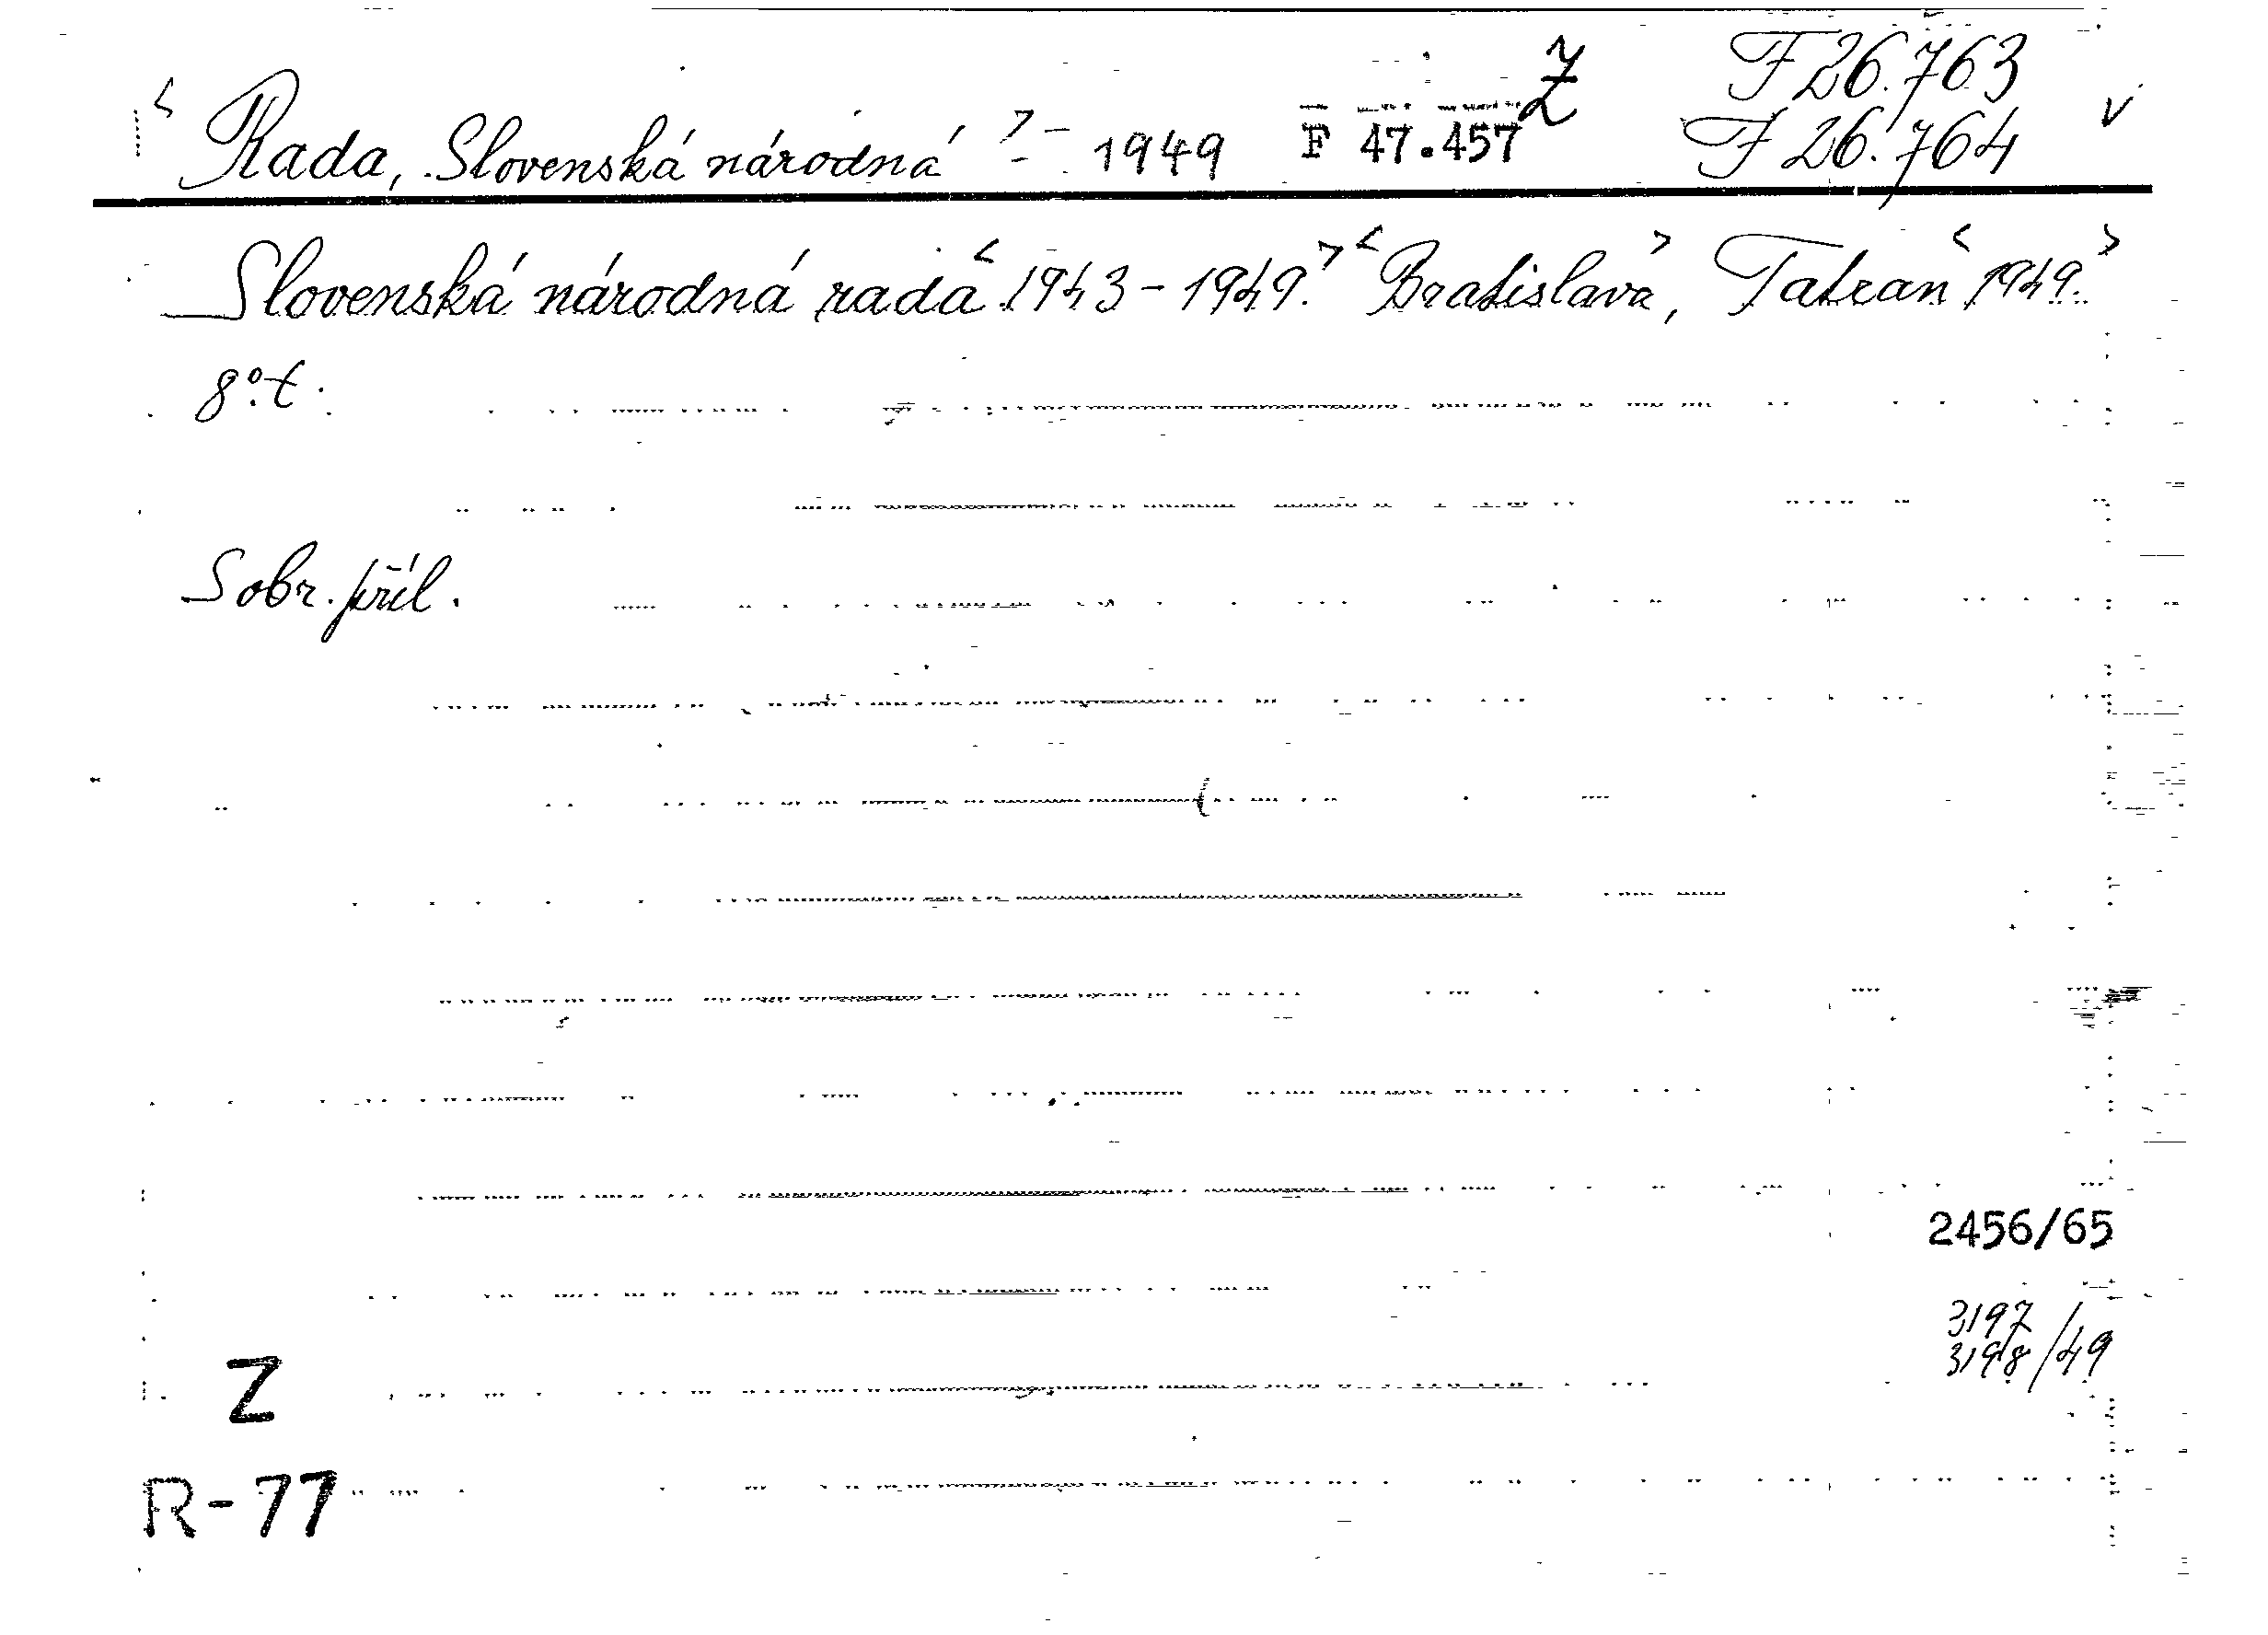 Z F 26.763
<Rada, Slovenská národná> - 1949 F 47.457 F 26.764 v
Slovenská národná rada <1943-1949.> <Bratislava>, Tatran <1949.>
8°. t.
S obr. příl.
2456/65
3197
3198/49
Z
R-77